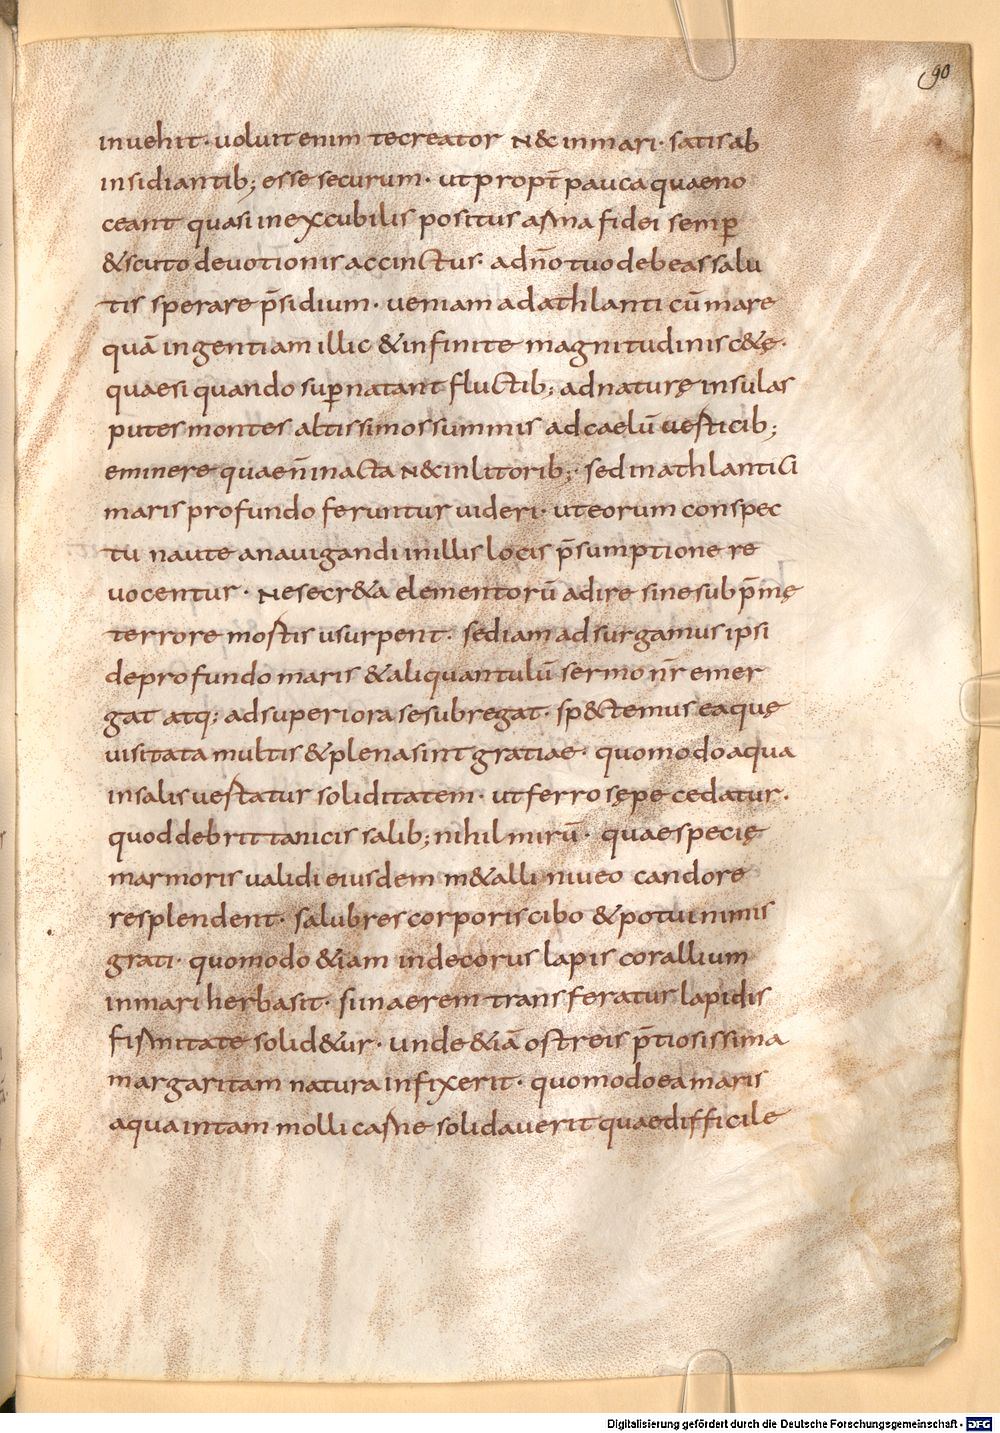 90
inuehit · uoluit enim te creator n& in mari · satis ab
insidiantib; esse securum · ut propt̄ pauca quae no
ceant quasi in excubilis positus arma fidei semꝑ
& scuto deuotionis accinctus · ad dn̄o tuo debeas salu
tis sperare p̄sidium · ueniam ad athlanticū mare
quā ingentiam illic & infinite magnitudinis c&ę ·
quae si quando suꝑnatant fluctib; ad naturę insulas
putes montes altissimos summis ad caelū uesticib;
eminere quae n̄ in acta n& in litorib; · sed in athlantici
maris profundo feruntur uideri · ut eorum conspec
tu naute a nauigandi in illis locis p̄sumptione re
uocentur · ne secr&a elementorū adire sine sub p̄mę
terrore mortis usurpent · sed iam adsurgamus ipsi
de profundo maris & aliquantulū sermo nr̄ emer
gat atq; ad superiora se subregat · sp&temus ea quę
uisitata multis & plena sint gratiae · quomodo aqua
in salis uertatur soliditatem · ut ferro sępe cedatur ·
quod de brittanicis salib; nihil mirū · quae specię
marmoris ualidi eiusdem m&alli niueo candore
resplendent · salubres corporis cibo & potui nimis
grati · quomodo &iam indecorus lapis corallium
in mari herba sit · si in aerem transferatur lapidis
firmitate solid&ur · unde &iā ostreis p̄tiosissima
margaritam natura infixerit · quomodo ea maris
aqua in tam molli carne solidauerit quae difficile
Digitalisierung gefördert durch die Deutsche Forschungsgemeinschaft - DFG